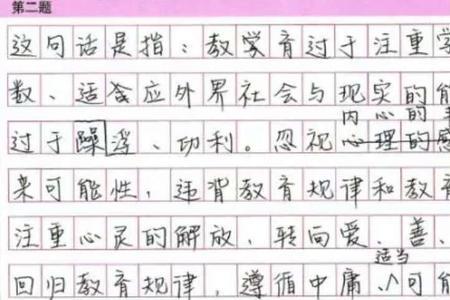 第二题
这句话是指：教学育过于注重学
数、适含应外界社会与现实的能
内心的
过于躁浮、功利。忽视心理的感
来可能性，违背教育规律和教育
注重心灵的解放，转向爱、善、
适当
回归教育规律，遵循中庸、可能